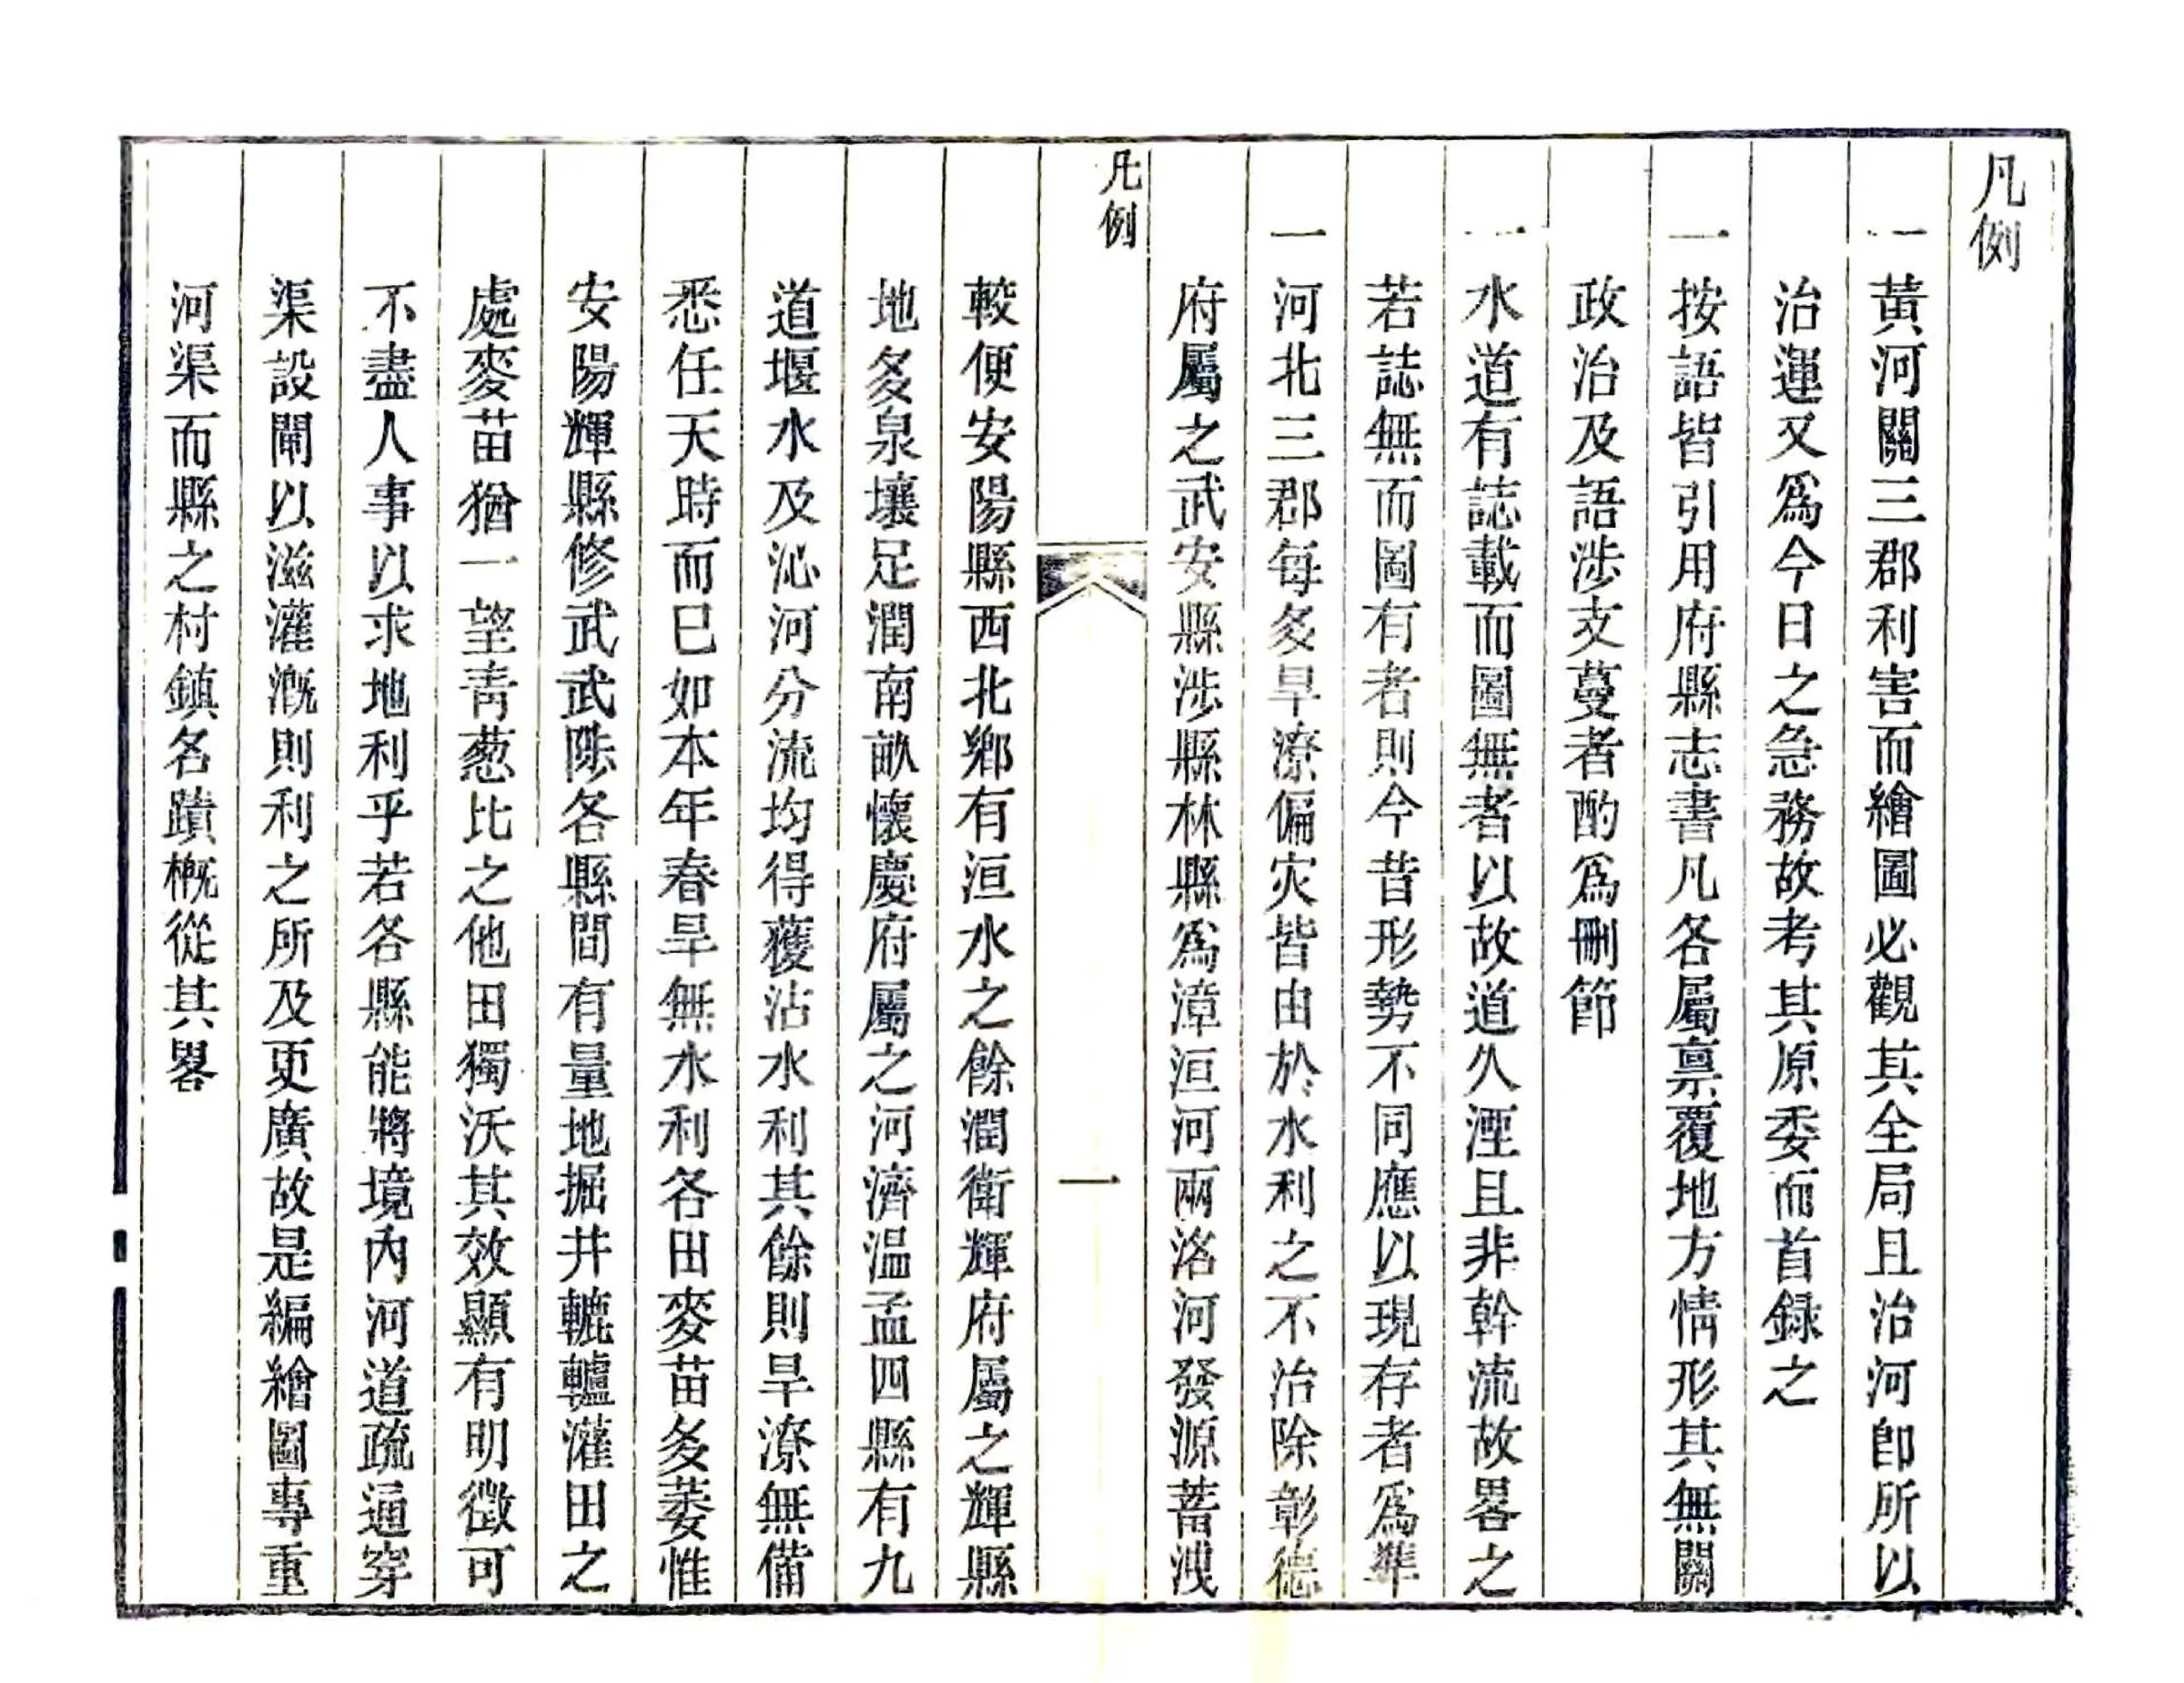 凡例
一黃河關三郡利害而繪圖必觀其全局且治河卽所以
治運又爲今日之急務故考其原委而首録之
一按語皆引用府縣志書凡各屬禀覆地方情形其無關
政治及語涉支蔓者酌爲刪節
一水道有誌載而圖無者以故道久湮且非幹流故畧之
若誌無而圖有者則今昔形勢不同應以現存者爲準
一河北三郡每多旱潦偏灾皆由於水利之不治除彰德
府屬之武安縣涉縣林縣爲漳洹河兩洛河發源蓄洩
凡例
一
較便安陽縣西北鄉有洹水之餘潤衛輝府屬之輝縣
地多泉壤足潤南畝懷慶府屬之河濟温孟四縣有九
道堰水及沁河分流均得獲沾水利其餘則旱潦無備
悉任天時而已如本年春旱無水利各田麥苗多萎惟
安陽輝縣修武武陟各縣間有量地掘井轆轤灌田之
處麥苗猶一望青葱比之他田獨沃其效顯有明徵可
不盡人事以求地利乎若各縣能將境內河道疏通穿
渠設閘以滋灌溉則利之所及更廣故是編繪圖專重
河渠而縣之村鎮名蹟概從其畧